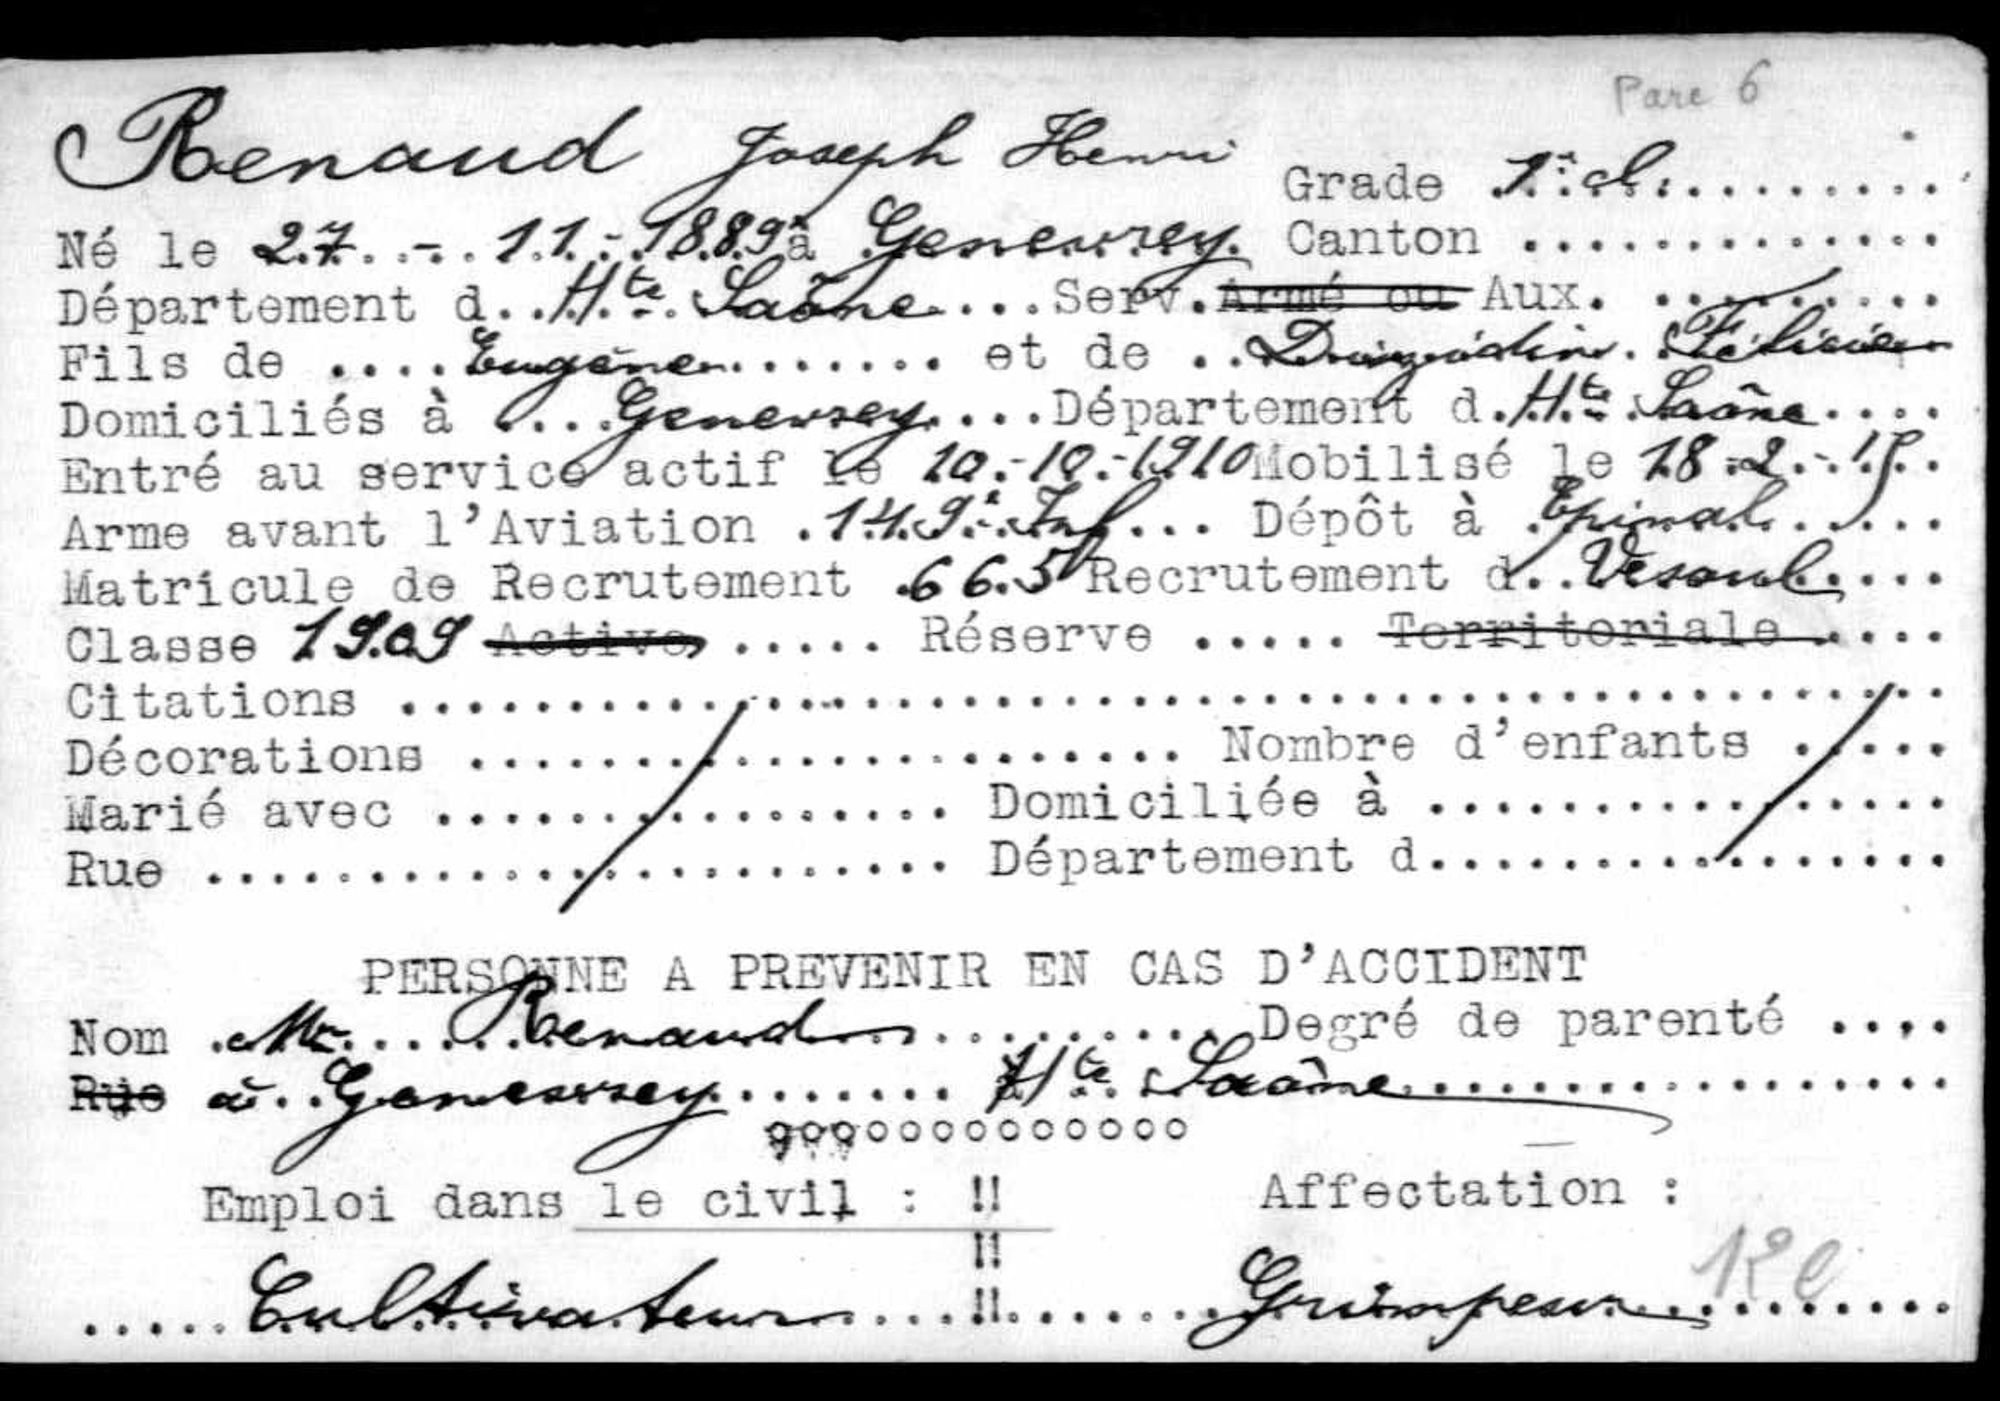 Parc 6
Renaud Joseph Henri Grade 1è cl.
Né le 27 - 11 - 1889 à Genevrey. Canton
Département d. Hte Saône Serv. Armé ou Aux.
Fils de Eugène et de
Domiciliés à Genevrey Département d. Hte Saône
Entré au service actif le 10-10-1910 Mobilisé le 18-2-15
Arme avant l'Aviation 149è Inf Dépôt à Epinal
Matricule de Recrutement 665 Recrutement d. Vesoul
Classe 1909 Active Réserve Territoriale
Citations
Décorations Nombre d'enfants
Marié avec Domiciliée à
Rue Département d
PERSONNE A PREVENIR EN CAS D'ACCIDENT
Nom Mr Renaud Degré de parenté
Rue à Genevrey Hte Saône
Emploi dans le civil : !! Affectation :
!!
Cultivateur !! Grimpeur